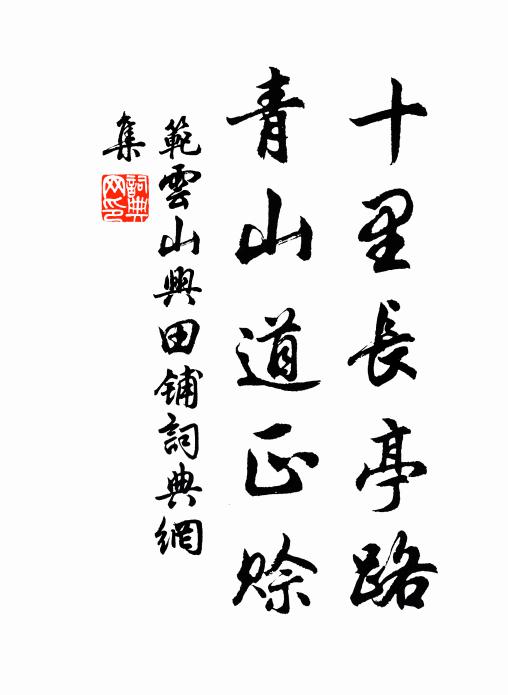 十里長亭路
青山道正賒
範雲山興田鋪詞典網
集
詞典
网印